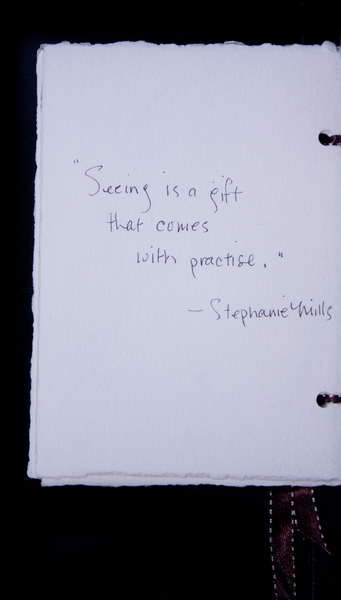 "Seeing is a gift
that comes
with practise."
- Stephanie Mills